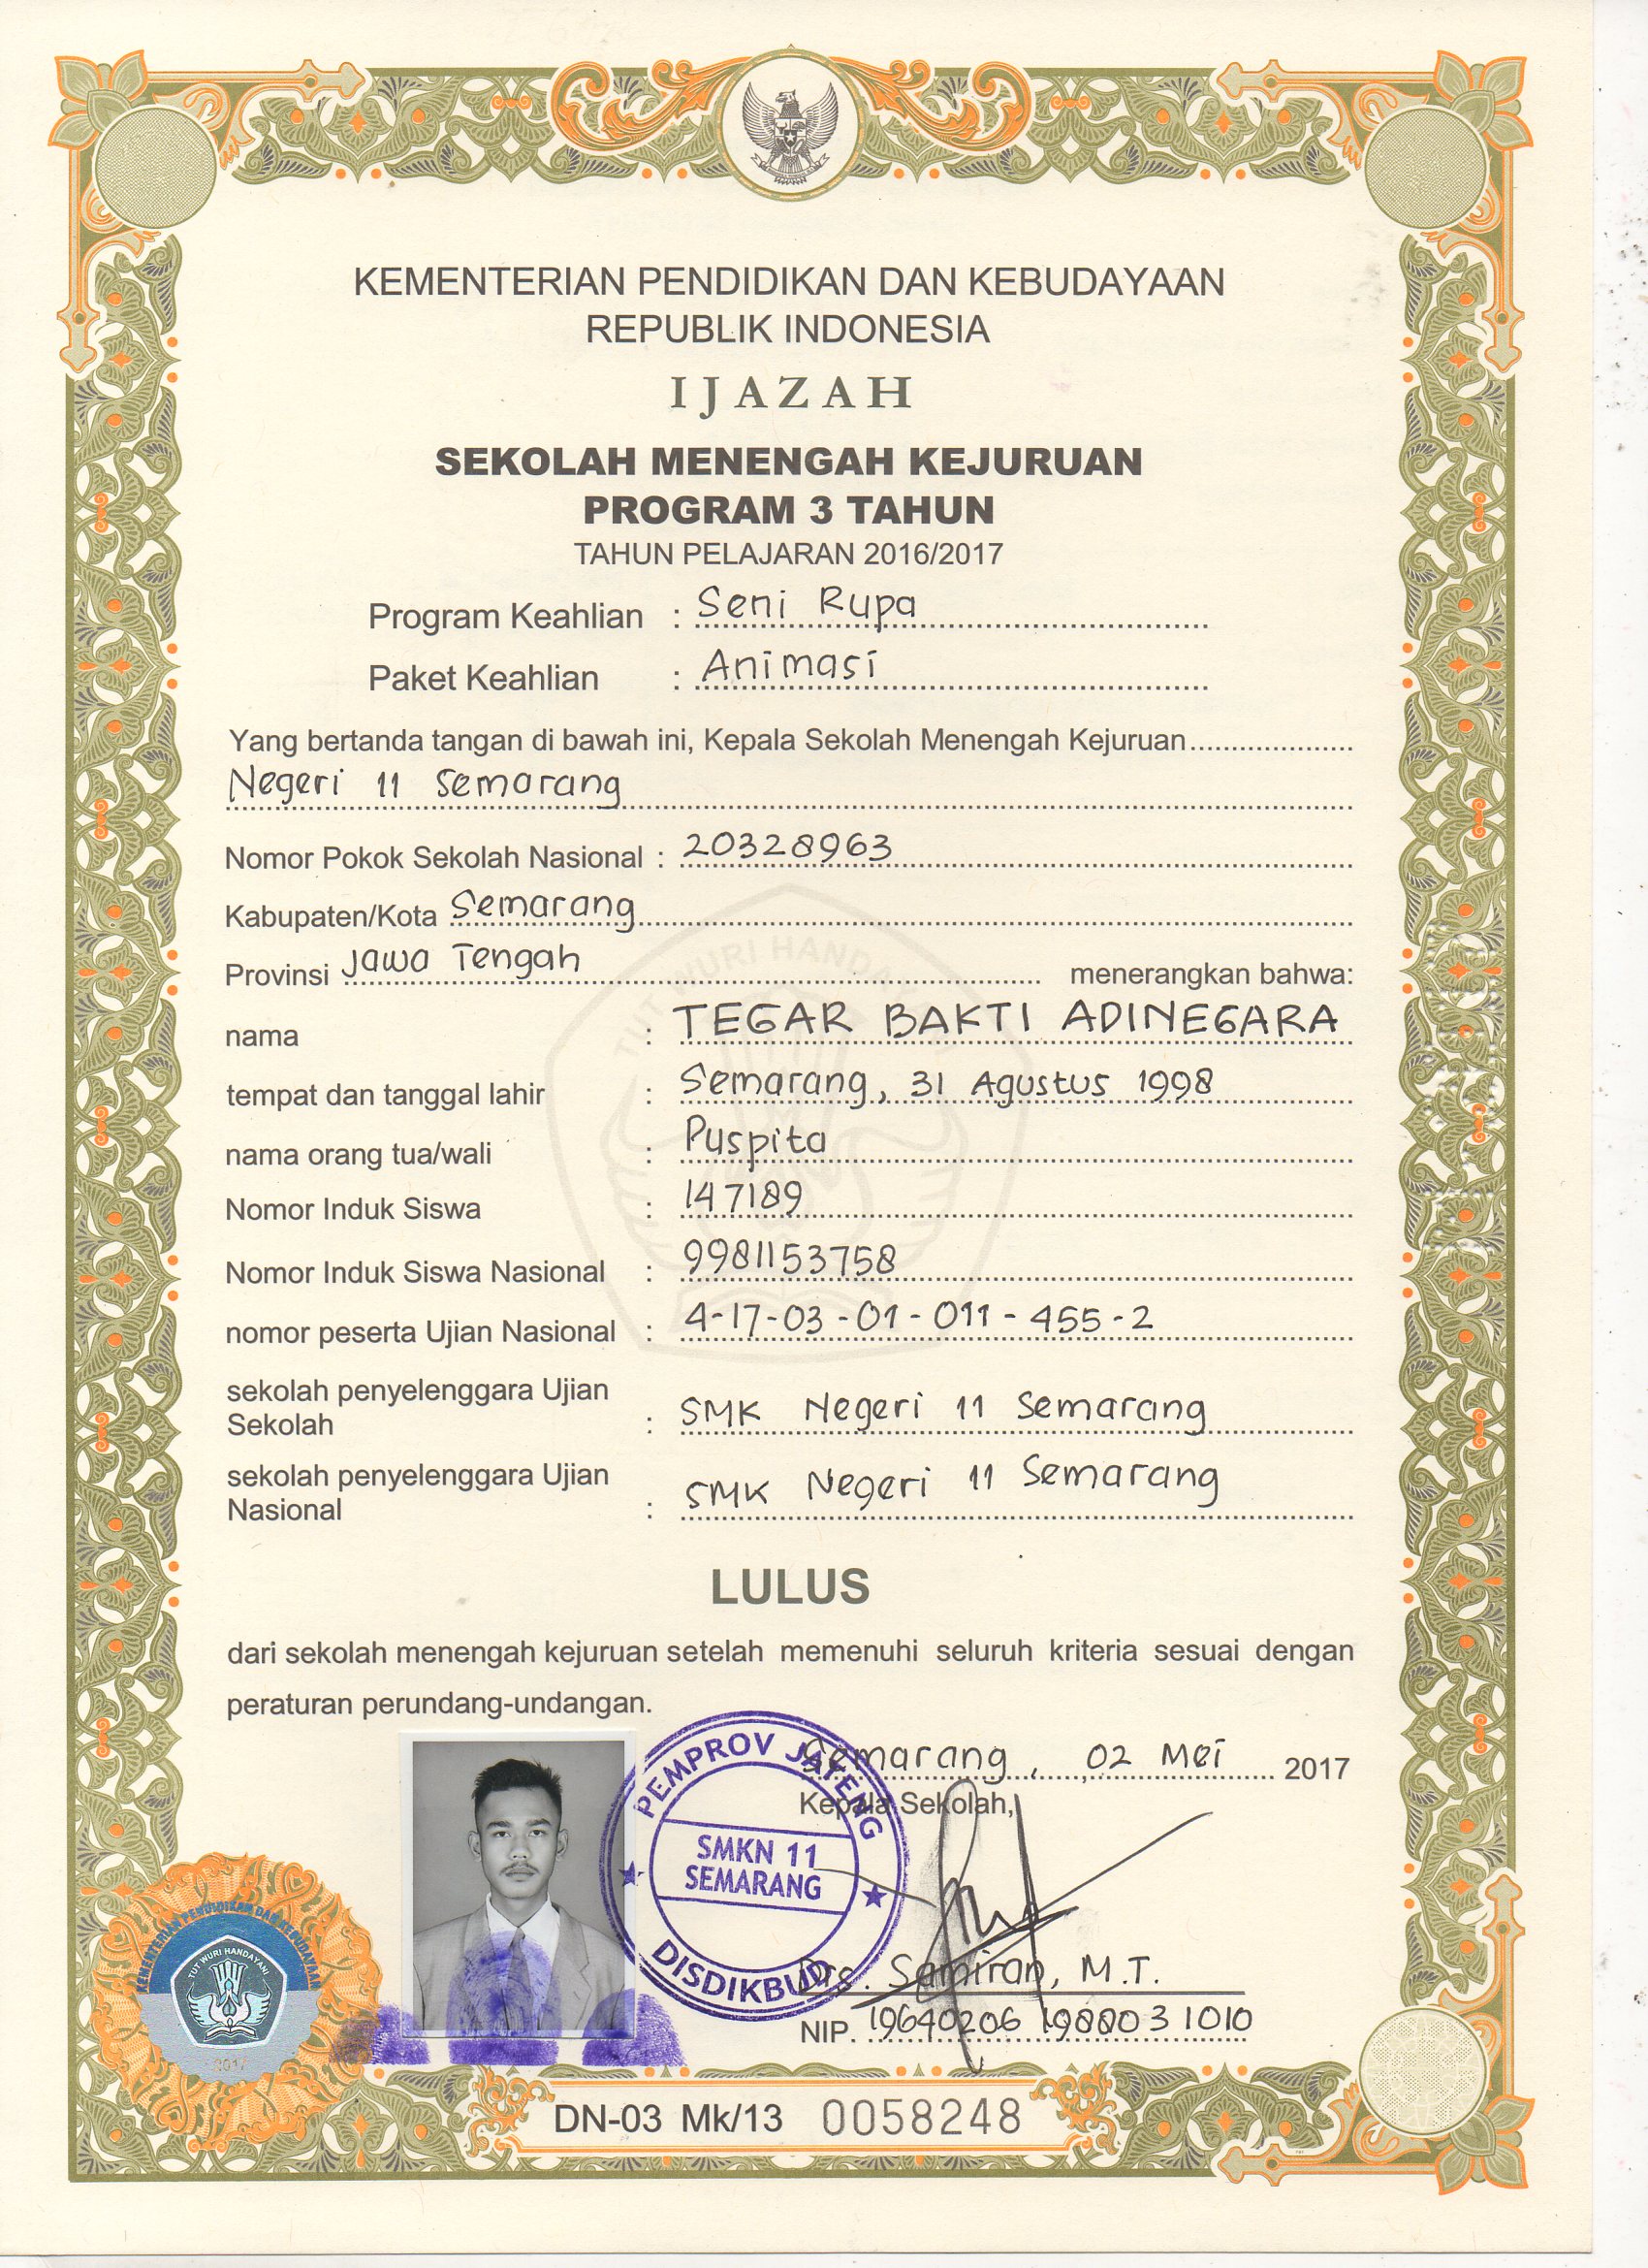 KEMENTERIAN PENDIDIKAN DAN KEBUDAYAAN
REPUBLIK INDONESIA
IJAZAH
SEKOLAH MENENGAH KEJURUAN
PROGRAM 3 TAHUN
TAHUN PELAJARAN 2016/2017
Program Keahlian : Seni Rupa
Paket Keahlian : Animasi
Yang bertanda tangan di bawah ini, Kepala Sekolah Menengah Kejuruan
Negeri 11 Semarang
Nomor Pokok Sekolah Nasional : 20328963
Kabupaten/Kota Semarang
Provinsi Jawa Tengah menerangkan bahwa:
TUT WURI HANDAYANI
nama : TEGAR BAKTI ADINEGARA
tempat dan tanggal lahir : Semarang, 31 Agustus 1998
nama orang tua/wali : Puspita
Nomor Induk Siswa : 147189
Nomor Induk Siswa Nasional : 9981153758
nomor peserta Ujian Nasional : 4-17-03-01-011-455-2
sekolah penyelenggara Ujian
Sekolah : SMK Negeri 11 Semarang
sekolah penyelenggara Ujian
Nasional : SMK Negeri 11 Semarang
LULUS
dari sekolah menengah kejuruan setelah memenuhi seluruh kriteria sesuai dengan
peraturan perundang-undangan.
Semarang, 02 Mei 2017
Kepala Sekolah,
PEMPROV JATENG
SMKN 11
SEMARANG
DISDIKBUD
Drs. Samiran, M.T.
NIP. 19640206 198803 1010
KEMENTERIAN PENDIDIKAN DAN KEBUDAYAAN
TUT WURI HANDAYANI
2017
DN-03 Mk/13 0058248